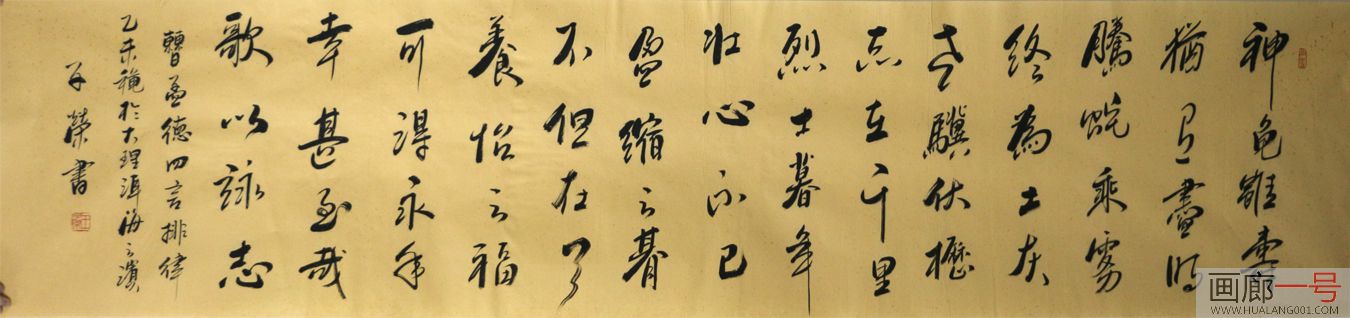 神龟雖壽
猶有盡時
騰蛇乘霧
終為土灰
老驥伏櫪
志在千里
烈士暮年
壯心不已
盈縮之期
不但在天
養怡之福
可得永年
幸甚至哉
歌以詠志
曹孟德四言排律
乙未穐於大理洱海之濱
子榮書
画廊一号
WWW.HUALANG001.COM